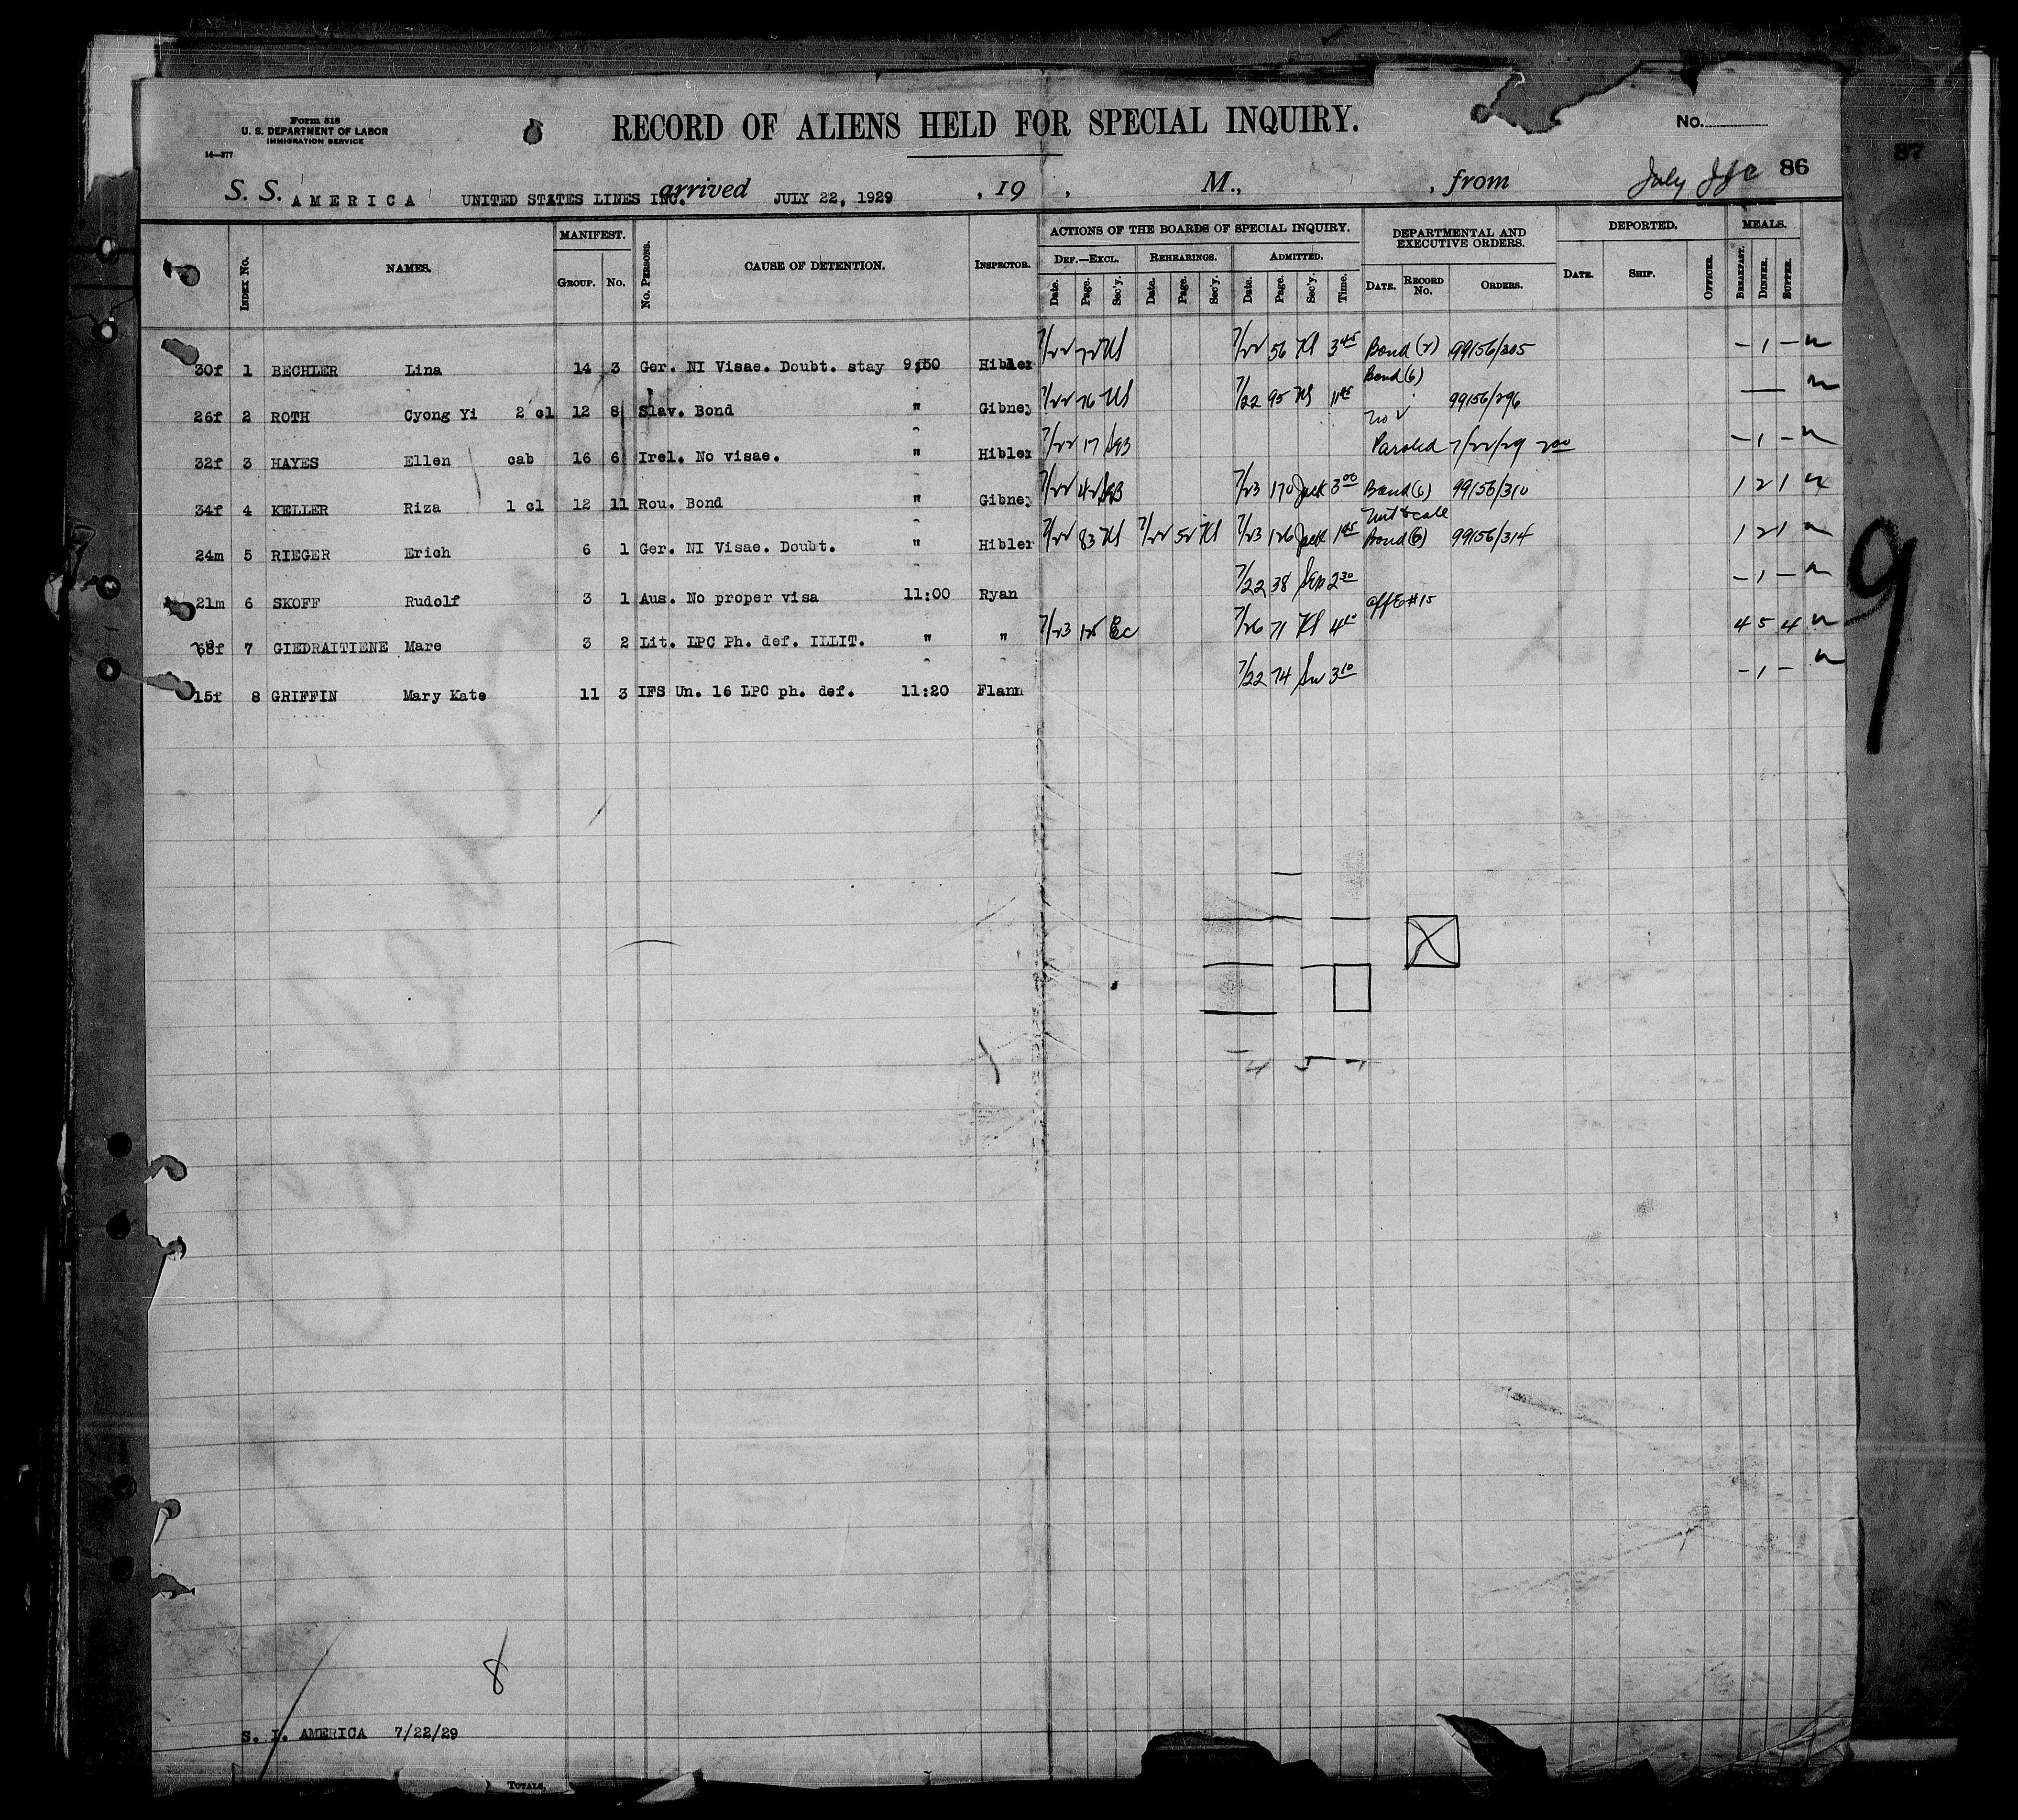 Form 518
U. S. DEPARTMENT OF LABOR
IMMIGRATION SERVICE
14—377
RECORD OF ALIENS HELD FOR SPECIAL INQUIRY.
No.
87
86
July
S. S. AMERICA UNITED STATES LINES INC. arrived JULY 22, 1929 , 19 , M., , from
INDEX No. NAMES. MANIFEST. GROUP. No. No. PERSONS. CAUSE OF DETENTION. INSPECTOR. ACTIONS OF THE BOARDS OF SPECIAL INQUIRY. DEPARTMENTAL AND EXECUTIVE ORDERS. DEPORTED. MEALS.
DEF.—EXCL. REHEARINGS. ADMITTED.
Date. Page. Sec'y. Date. Page. Sec'y. Date. Page. Sec'y. Time. DATE. RECORD No. ORDERS. DATE. SHIP. OFFICER. BREAKFAST. DINNER. SUPPER.
30f 1 BECHLER Lina 14 3 Ger. NI Visae. Doubt. stay 9:50 Hibler 7/22 72 7/22 56 3 45 Bond (2) 99156/305 – 1 –
26f 2 ROTH Cyong Yi 2 cl 12 8 Slav. Bond " Gibney 7/22 76 7/22 95 11 45 Bond (6) 99156/296 —
32f 3 HAYES Ellen cab 16 6 Irel. No visae. " Hibler 7/22 17 Paroled 7/22/29 – 1 –
34f 4 KELLER Riza 1 cl 12 11 Rou. Bond " Gibney 7/22 42 7/23 170 Jack 3 00 Bond (6) 99156/310 1 2 1
24m 5 RIEGER Erich 6 1 Ger. NI Visae. Doubt. " Hibler 7/22 83 7/22 52 7/23 126 Jack 1 45 Bond (6) 99156/314 1 2 1
21m 6 SKOFF Rudolf 3 1 Aus. No proper visa 11:00 Ryan 7/22 38 2 30 – 1 –
68f 7 GIEDRAITIENE Mare 3 2 Lit. LPC Ph. def. ILLIT. " " 7/23 7/26 71 #15 4 5 4
15f 8 GRIFFIN Mary Kate 11 3 IFS Un. 16 LPC ph. def. 11:20 Flann 7/22 74 3 10 – 1 –
9
8
S. I. AMERICA 7/22/29
TOTALS,